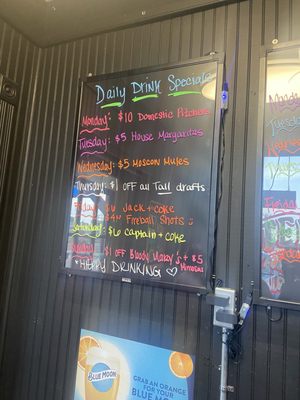 Daily Drink Specials
Monday: $10 Domestic Pitchers
Tuesday: $5 House Margaritas
Wednesday: $5 Moscow Mules
Thursday: $1 OFF all Tall drafts
Friday: $6 Jack + coke
$4 Fireball Shots
Saturday: $6 captain + coke
Sunday: $1 off Bloody Mary's + $5
Mimosas
HAPPY DRINKING
BLUE MOON
GRAB AN ORANGE
FOR YOUR
BLUE MOON